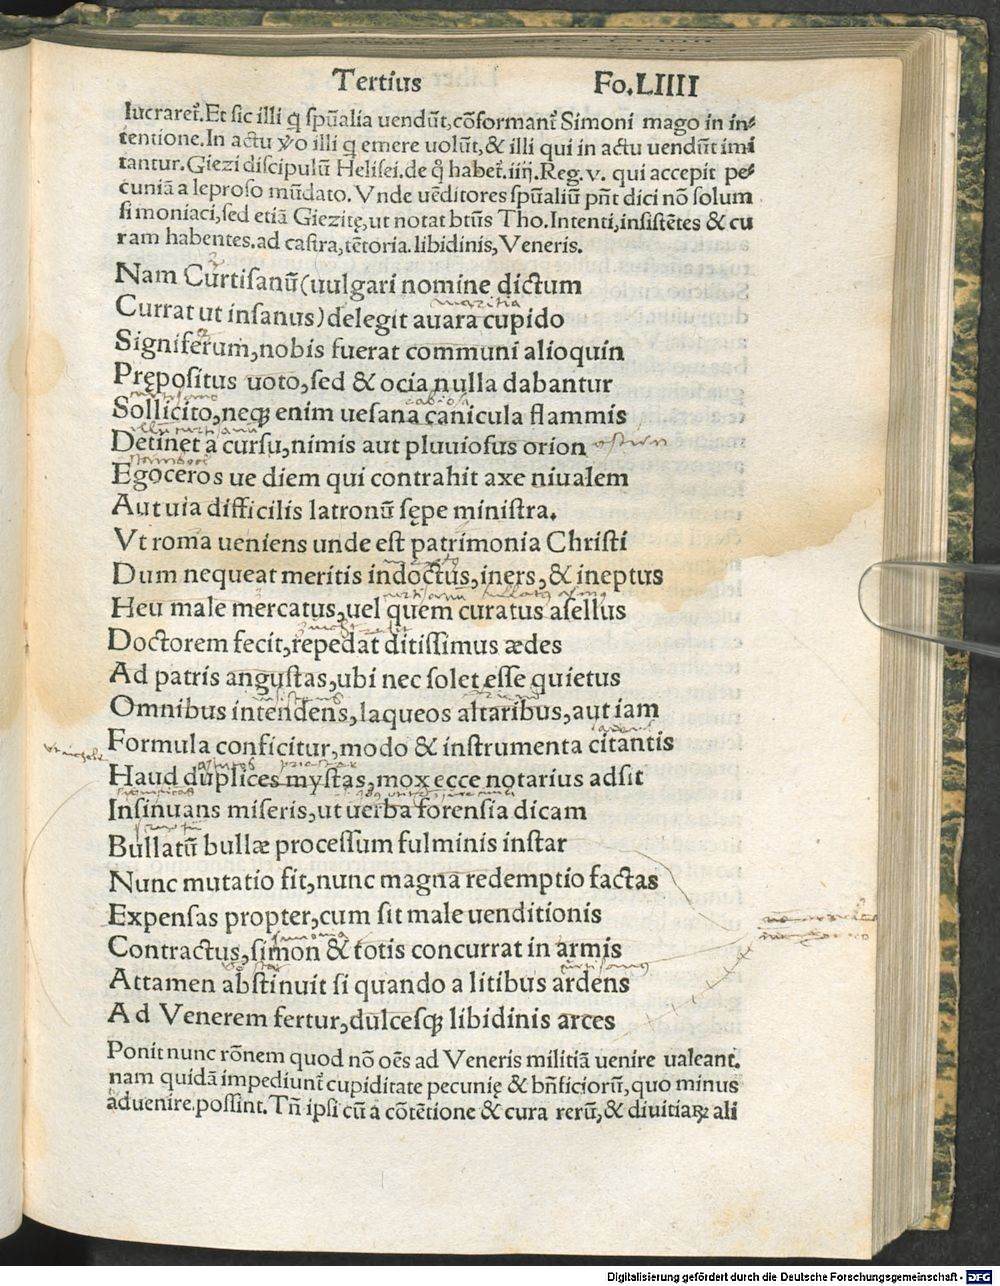 Tertius Fo.LIIII
lucraret᷑.Et sic illi q̃ spũalia uendũt,cõformant᷑ Simoni mago in in⸗
tentione.In actu ṽo illi q̃ emere uolũt,& illi qui in actu uendũt imi
tantur.Giezi discipulũ Helisei.de q̃ habet᷑.iiij.Reg.v. qui accepit pe⸗
cuniã a leproso mũdato. Vnde uẽditores spũaliũ pñt dici nõ solum
simoniaci,sed etiã Giezitę,ut notat btũs Tho.Intenti,insistẽtes & cu
ram habentes.ad castra,tẽtoria.libidinis,Veneris.
Nam Curtisanũ(uulgari nomine dictum
Currat ut insanus)delegit auara cupido
Signiferum,nobis fuerat communi alioquin
Prępositus uoto,sed & ocia nulla dabantur
Sollicito,neqꝫ enim uesana canicula flammis
Detinet a cursu,nimis aut pluuiosus orion
Egoceros ue diem qui contrahit axe niualem
Aut uia difficilis latronũ sępe ministra.
Vt roma ueniens unde est patrimonia Christi
Dum nequeat meritis indoctus,iners,& ineptus
Heu male mercatus,uel quem curatus asellus
Doctorem fecit,repedat ditissimus ædes
Ad patris angustas,ubi nec solet esse quietus
Omnibus intendens,laqueos altaribus,aut iam
Formula conficitur,modo & instrumenta citantis
Haud duplices mystas,mox ecce notarius adsit
Insinuans miseris,ut uerba forensia dicam
Bullatũ bullæ processum fulminis instar
Nunc mutatio fit,nunc magna redemptio factas
Expensas propter,cum sit male uenditionis
Contractus,simon & totis concurrat in armis
Attamen abstinuit si quando a litibus ardens
Ad Venerem fertur,dulcesqꝫ libidinis arces
Ponit nunc rõnem quod nõ oẽs ad Veneris militiã uenire ualeant.
nam quidã impediunt᷑ cupiditate pecunię & bñficiorũ,quo minus
aduenire.possint.Tñ ipsi cũ a cõtẽtione & cura rerũ,& diuitiaꝝ ali
Digitalisierung gefördert durch die Deutsche Forschungsgemeinschaft - DFG